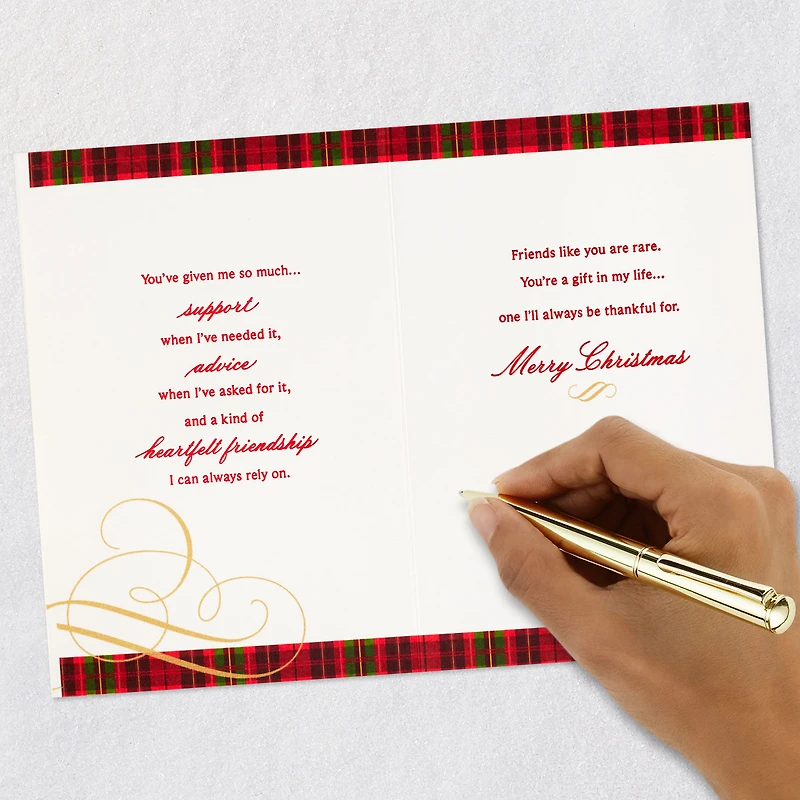 You've given me so much...
support
when I've needed it,
advice
when I've asked for it,
and a kind of
heartfelt friendship
I can always rely on.
Friends like you are rare.
You're a gift in my life...
one I'll always be thankful for.
Merry Christmas